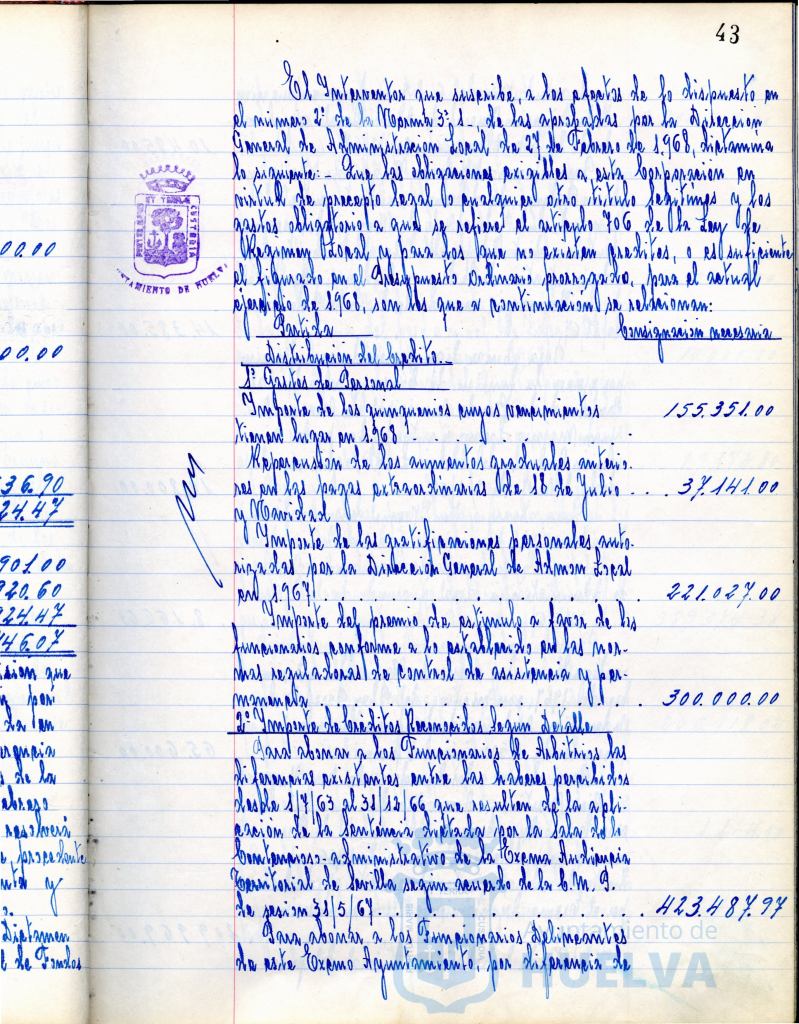 43
El Interventor que suscribe, a los efectos de lo dispuesto en
el número 2º de la Norma 3ª 1 de las aprobadas por la Dirección
General de Administración Local de 27 de Febrero de 1.968, dictamina
lo siguiente:- Que las obligaciones exigibles a esta Corporación en
virtud de precepto legal o cualquier otro título legítimo y los
gastos obligatorio a que se refiere el artículo 706 de la Ley de
Regimen Local y para los que no existen creditos, o es suficiente
el figurado en el Presupuesto Ordinario prorrogado, para el actual
ejercicio de 1.968, son las que a continuación se relacionan:
Partida Consignación necesaria
Distribución del Credito.-
1º Gastos de Personal
Importe de los quinquenios cuyos vencimientos 155.351.00
tienen lugar en 1.968
Repercusión de los aumentos graduales anterio-
res en las pagas extraordinarias de 18 de Julio 37.141.00
y Navidad
Importe de las gratificaciones personales auto-
rizadas por la Dirección General de Admon Local
en 1.967 221.027.00
Importe del premio de estimulo a favor de los
funcionarios conforme a lo establecido en las nor-
mas reguladoras de control de asistencia y per-
manencia 300.000.00
2º Importe de Creditos Reconocidos segun Detalle
Para abonar a los Funcionarios de Arbitrios las
diferencias existentes entre los haberes percibidos
desde 1/7/63 al 31/12/66 que resultan de la apli-
cación de la Sentencia dictada por la Sala de lo
Contencioso-administrativo de la Excma Audiencia
Territorial de Sevilla segun acuerdo de la C.M.P.
de sesion 31/5/67 423.487.97
Para abonar a los Funcionarios Delineantes
de este Excmo Ayuntamiento, por diferencia de
00.00
00.00
36.90
24.47
901.00
920.60
924.47
46.07
ision que
por
da en
erencia
de la
ebrero
resolverá
e procedente
y
Dictamen
l de Fondos
AYUNTAMIENTO DE HUELVA
PORTUS MARIS ET TERRAE CUSTODIA
Ayuntamiento de
HUELVA